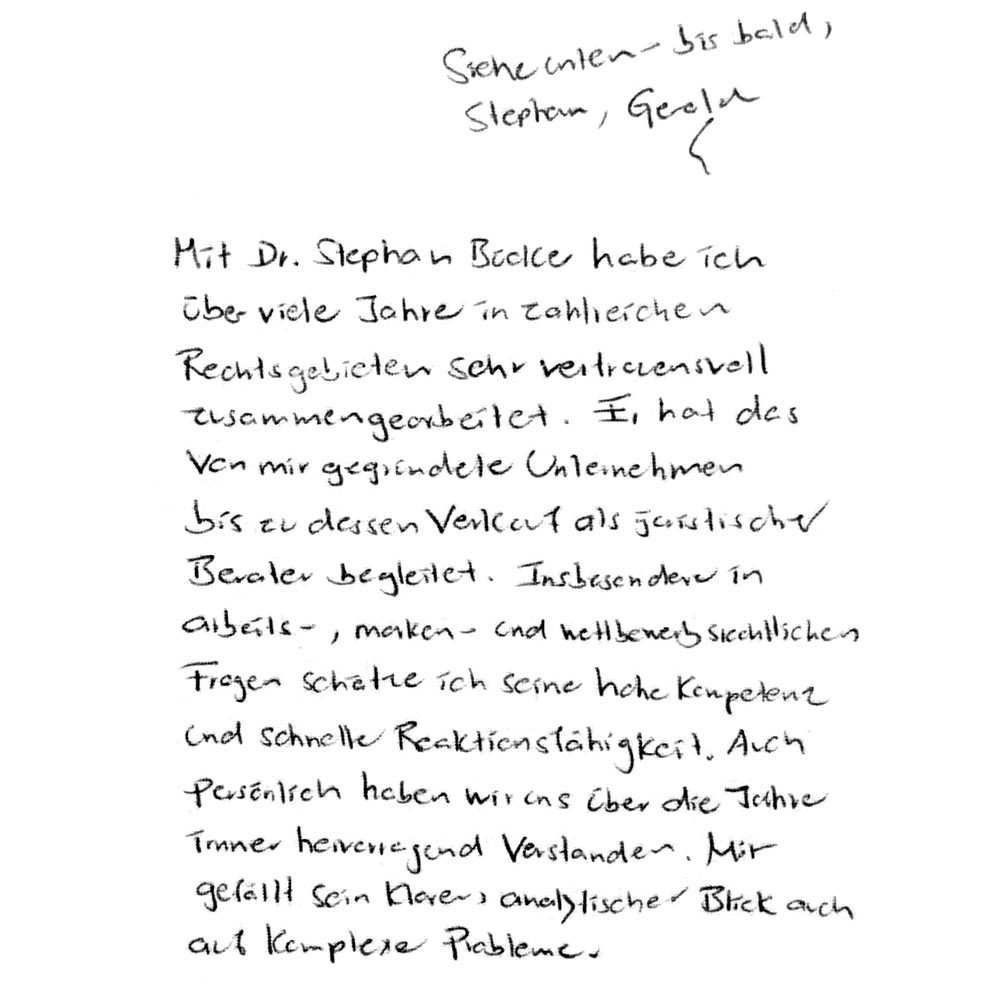 Siehe unten - bis bald,
Stephan, Gerald
Mit Dr. Stephan Bücke habe ich
über viele Jahre in zahlreichen
Rechtsgebieten sehr vertrauensvoll
zusammengearbeitet. Er hat das
von mir gegründete Unternehmen
bis zu dessen Verkauf als juristischer
Berater begleitet. Insbesondere in
arbeits-, marken- und wettbewerbsrechtlichen
Fragen schätze ich seine hohe Kompetenz
und schnelle Reaktionsfähigkeit. Auch
persönlich haben wir uns über die Jahre
immer hervorragend verstanden. Mir
gefällt sein klarer, analytischer Blick auch
auf komplexe Probleme.